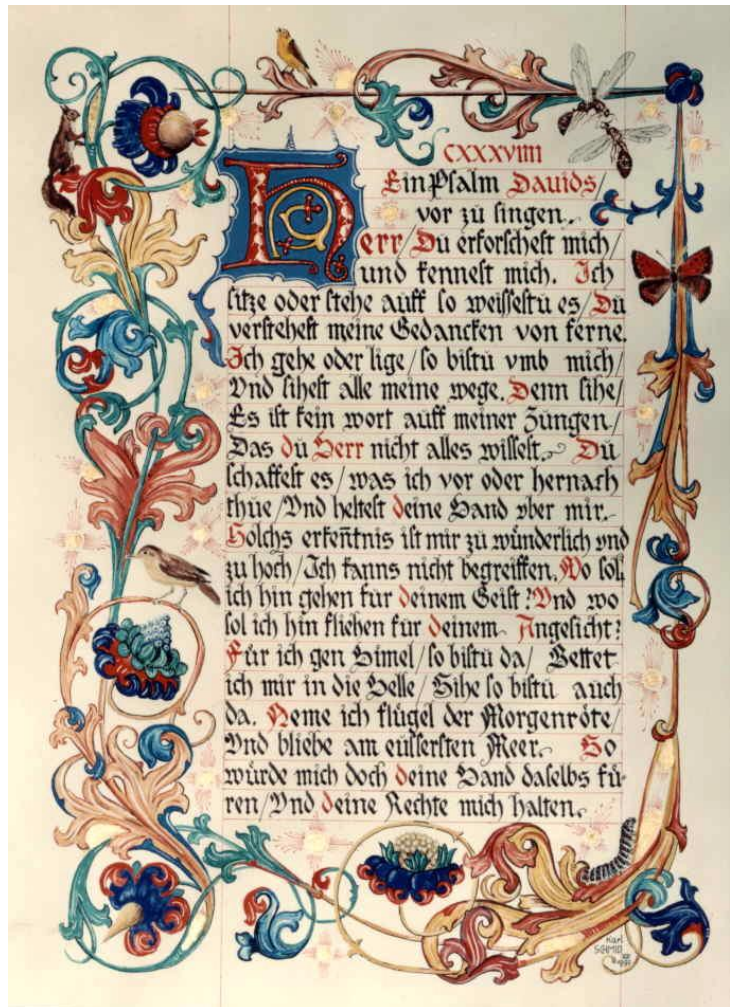 CXXXVIIII
Ein Psalm Dauids/
vor zů singen.
Herr/ Du erforschest mich/
und kennest mich. Ich
sitze oder stehe auff so weissestu es/ Du
verstehest meine Gedancken von ferne.
Ich gehe oder lige/ so bistu vmb mich/
Vnd sihest alle meine wege. Denn sihe/
Es ist kein wort auff meiner Zungen/
Das du Herr nicht alles wissest. Du
schaffest es/ was ich vor oder hernach
thue/ Vnd heltest deine Hand vber mir.
Solchs erkeñtnis ist mir zu wunderlich vnd
zu hoch/ Ich kanns nicht begreiffen. Wo sol
ich hin gehen fur deinem Geist? Vnd wo
sol ich hin fliehen fur deinem Angesicht?
Für ich gen Himel/ so bistu da/ Bettet
ich mir in die Helle/ Sihe so bistu auch
da. Neme ich flügel der Morgenröte/
Vnd bliebe am eussersten Meer. So
würde mich doch deine Hand daselbs fü-
ren/ Vnd deine Rechte mich halten.
Karl
SCHMID